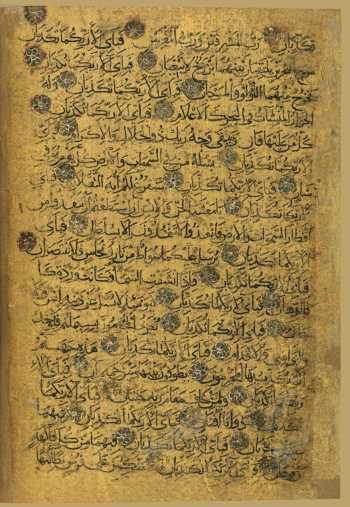 تكذبان رب المشرقين ورب المغربين فبأي آلاء ربكما تكذبان
مرج البحرين يلتقيان بينهما برزخ لا يبغيان فبأي آلاء ربكما تكذبان
يخرج منهما اللؤلؤ والمرجان فبأي آلاء ربكما تكذبان وله
الجوار المنشآت في البحر كالأعلام فبأي آلاء ربكما تكذبان
كل من عليها فان ويبقى وجه ربك ذو الجلال والإكرام فبأي
آلاء ربكما تكذبان يسأله من في السموات والأرض كل يوم هو في
شأن فبأي آلاء ربكما تكذبان سنفرغ لكم أيه الثقلان فبأي
آلاء ربكما تكذبان يا معشر الجن والإنس إن استطعتم أن تنفذوا من
أقطار السموات والأرض فانفذوا لا تنفذون إلا بسلطان فبأي
آلاء ربكما تكذبان يرسل عليكما شواظ من نار ونحاس فلا تنتصران
فبأي آلاء ربكما تكذبان فإذا انشقت السماء فكانت وردة كا
لدهان فبأي آلاء ربكما تكذبان فيومئذ لا يسأل عن ذنبه إنس ولا
جان فبأي آلاء ربكما تكذبان يعرف المجرمون بسيماهم فيؤخذ
بالنواصي والأقدام فبأي آلاء ربكما تكذبان هذه جهنم
التي يكذب بها المجرمون يطوفون بينها وبين حميم آن فبأي
آلاء ربكما تكذبان ولمن خاف مقام ربه جنتان فبأي آلاء ربكما
تكذبان ذواتا أفنان فبأي آلاء ربكما تكذبان فيهما
عينان تجريان فبأي آلاء ربكما تكذبان فيهما من كل فاكهة
زوجان فبأي آلاء ربكما تكذبان متكئين على فرش بطائنها